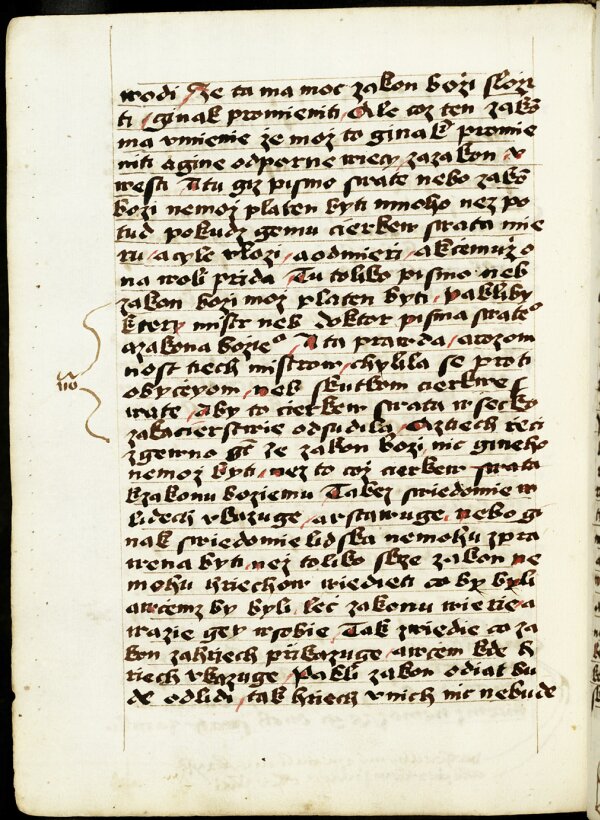 wodi / Ze ta ma moc zakon bozi slozi
ti / ginak promieniti / Ale coz ten zakō
ma vmienie ze moz to ginak promie
niti a gine odporne wiecy zazakon v
westi A tu giz pismo swate nebo zakō
bozi nemoz platen byti mnoho nez po
tud pokudz gemu cierkew swata mie
ru / a cyle vlozi / a odmieri / akciemuz o
na woli prida / Tu toliko pismo neb
zakon bozi moz platen byti / Pakliby
ktery mistr neb doktor pisma swateo
a zakona bozieo / A ta prawda / a rozom
nost tiech mistrow / chylila se proti
obyciyom / neb skutkom cierkwe s
wate / Aby to cierkew swata wsecko
zakacierstwie odsudila / Aztiech reci
zgewno gt ze zakon bozi nic gineho
nemoz byti / nez to coz cierkew swata
kzakonu boziemu Takez swiedomie w
lidech vkazuge / a wstawuge / nebo gi
nak swiedomie lidska nemohu zpra
wena byti / nez toliko skze zakon ne
mohu hriechow wiedieti co by byli
a wcemz by byli / lec zakonu wierie a
wazie gey wsobie / Tak zwiedie co za
kon zahriech prikazuge / a wcem kde h
riech vkazuge / Pakli zakon odiat bu
de od lidi / tak hriech vnich nic nebude